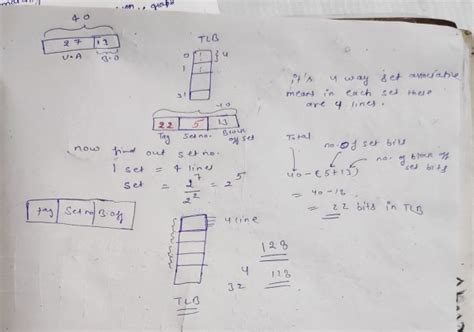 40
27 13
V.A B.O
TLB
0
1
4
31
it's 4 way set associative
means in each set there
are 4 lines.
40
22 5 13
Tag Set no. Block off set
now find out set no.
1 set = 4 lines
Set = 2^7 / 2^2 = 2^5
Total
no. of set bits
no. of block off set bits
40-(5+13)
= 40-18
= 22 bits in TLB
tag Set no B.off
4 line
128
4 128
32
TLB